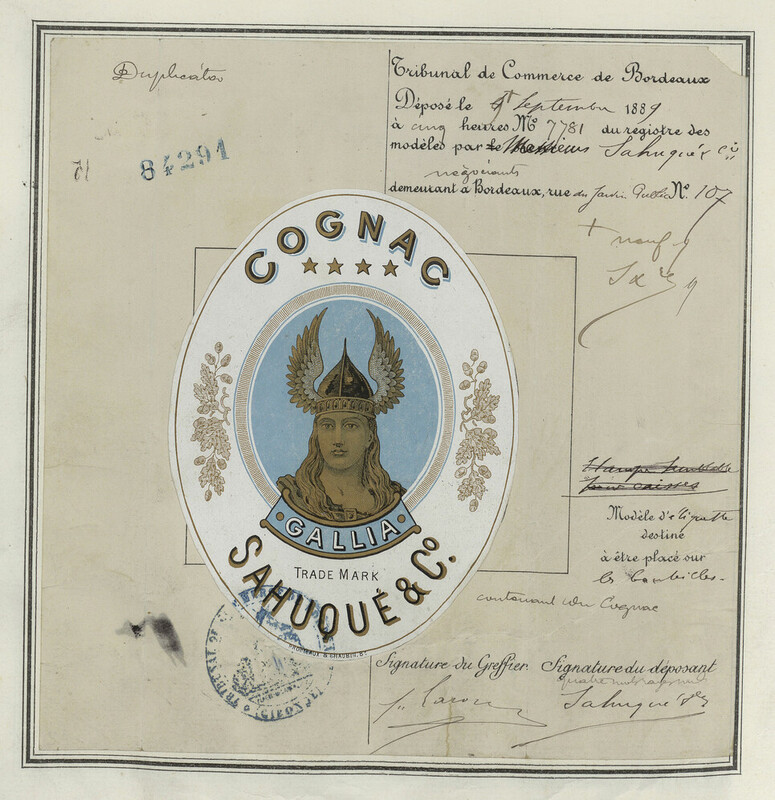 Duplicata
84291
Tribunal de Commerce de Bordeaux
Déposé le 9 + Septembre 1889
à cinq heures No 7781 du registre des
modèles par Sahuqué & Cie
négociants
demeurant à Bordeaux, rue du Jardin Public No. 107
+ neuf
COGNAC
GALLIA
TRADE MARK
SAHUQUÉ & Co.
Modèle d'étiquette
destiné
à être placé sur
les bouteilles
contenant du Cognac
Signature du Greffier. Signature du déposant
Sahuqué
TRIBUNAL DE
GIRONDE